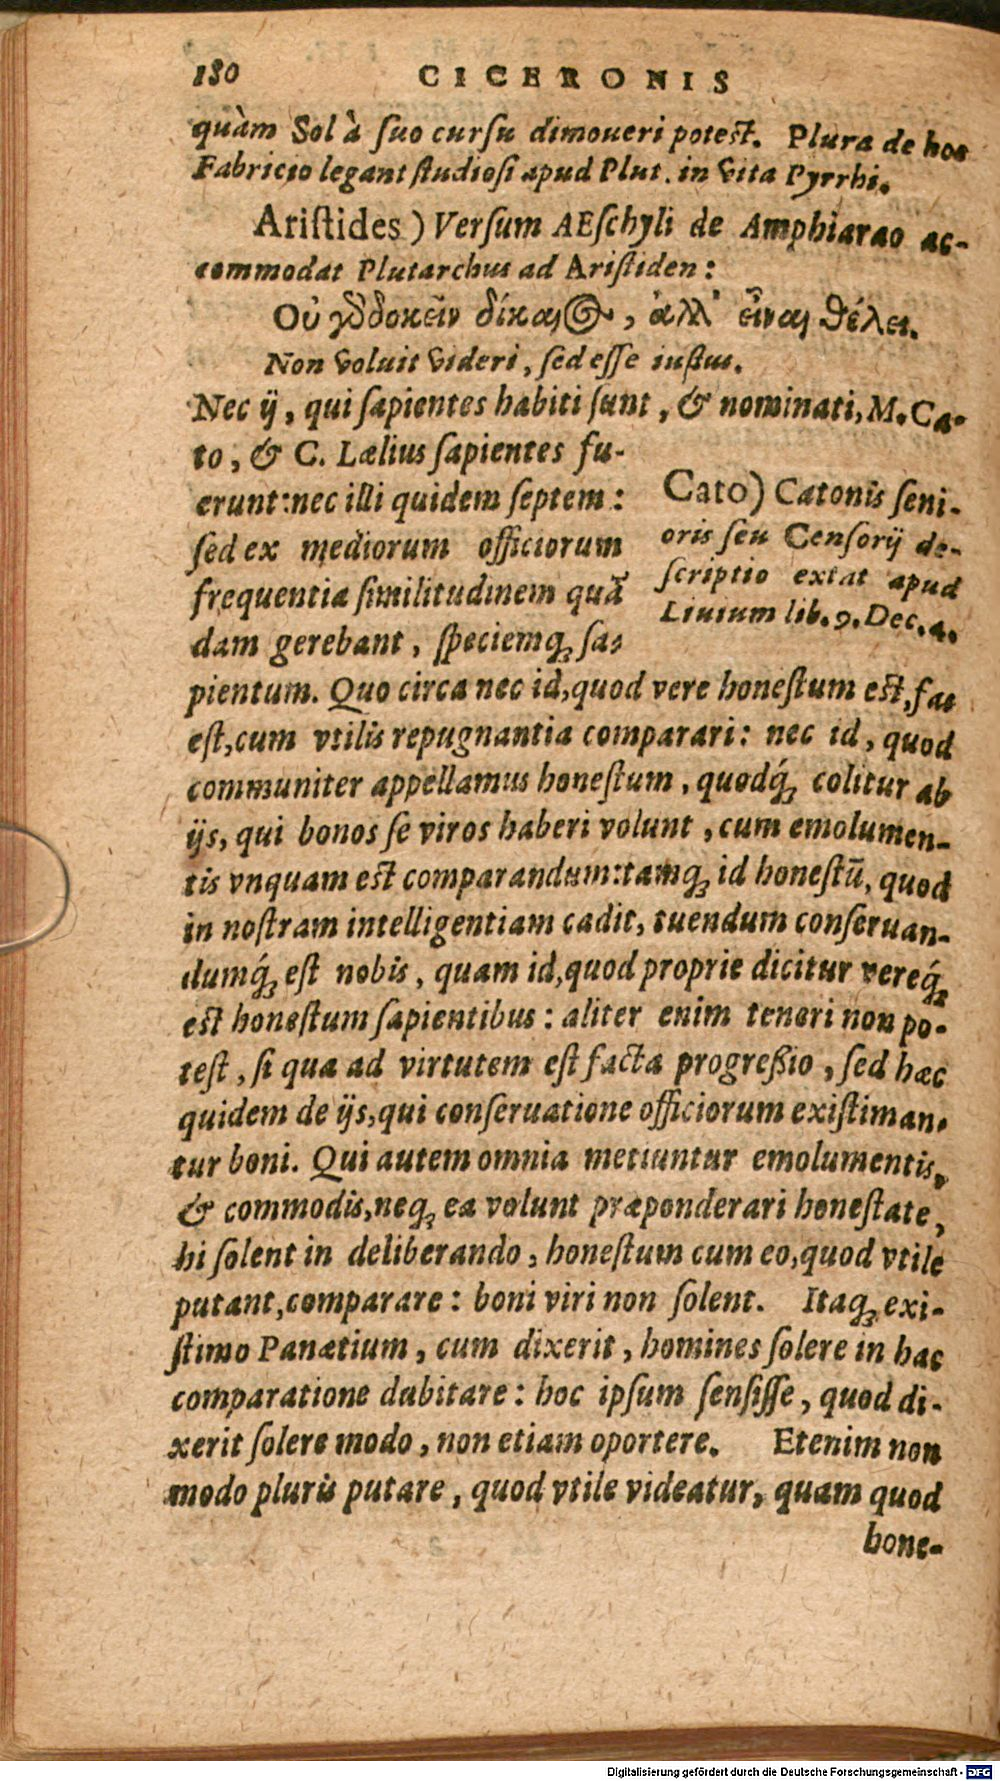 180 CICERONIS
quàm Sol à ſuo curſu dimoueri poteſt. Plura de hoc
Fabricio legant ſtudioſi apud Plut. in vita Pyrrhi.
Ariſtides) Verſum AEſchyli de Amphiarao ac-
commodat Plutarchus ad Ariſtiden:
Οὐ γὰρ δοκεῖν δίκαιος, ἀλλ' εἶναι θέλει.
Non voluit videri, ſed eſſe iuſtus.
Nec ij, qui ſapientes habiti ſunt, & nominati, M. Ca-
to, & C. Lælius ſapientes fu-
erunt: nec illi quidem ſeptem:
ſed ex mediorum officiorum
frequentia ſimilitudinem quā
dam gerebant, ſpeciemq́; ſa-
Cato) Catonis ſeni-
oris ſeu Cenſorij de-
ſcriptio extat apud
Liuium lib. 9. Dec. 4.
pientum. Quo circa nec id, quod vere honeſtum eſt, fas
eſt, cum vtilis repugnantia comparari: nec id, quod
communiter appellamus honeſtum, quodq́; colitur ab
ijs, qui bonos ſe viros haberi volunt, cum emolumen-
tis vnquam eſt comparandum: tamq; id honeſtū, quod
in noſtram intelligentiam cadit, tuendum conſeruan-
dumq́; eſt nobis, quam id, quod proprie dicitur vereq́;
eſt honeſtum ſapientibus: aliter enim teneri non po-
teſt, ſi qua ad virtutem eſt facta progreßio, ſed hæc
quidem de ijs, qui conſeruatione officiorum exiſtiman-
tur boni. Qui autem omnia metiuntur emolumentis,
& commodis, neq; ea volunt præponderari honeſtate,
hi ſolent in deliberando, honeſtum cum eo, quod vtile
putant, comparare: boni viri non ſolent. Itaq; exi-
ſtimo Panætium, cum dixerit, homines ſolere in hac
comparatione dubitare: hoc ipſum ſenſiſſe, quod di-
xerit ſolere modo, non etiam oportere. Etenim non
modo pluris putare, quod vtile videatur, quam quod
hone-
Digitalisierung gefördert durch die Deutsche Forschungsgemeinschaft - DFG